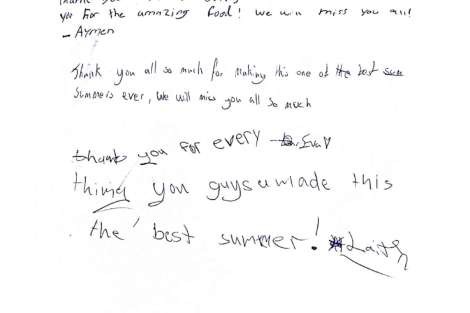 thank you
you for the amazing food! we will miss you all!
- Aymen
Thank you all so much for making this one of the best
summers ever, we will miss you all so much
thank you for every - Eva
thing you guys made this
the best summer! Laith